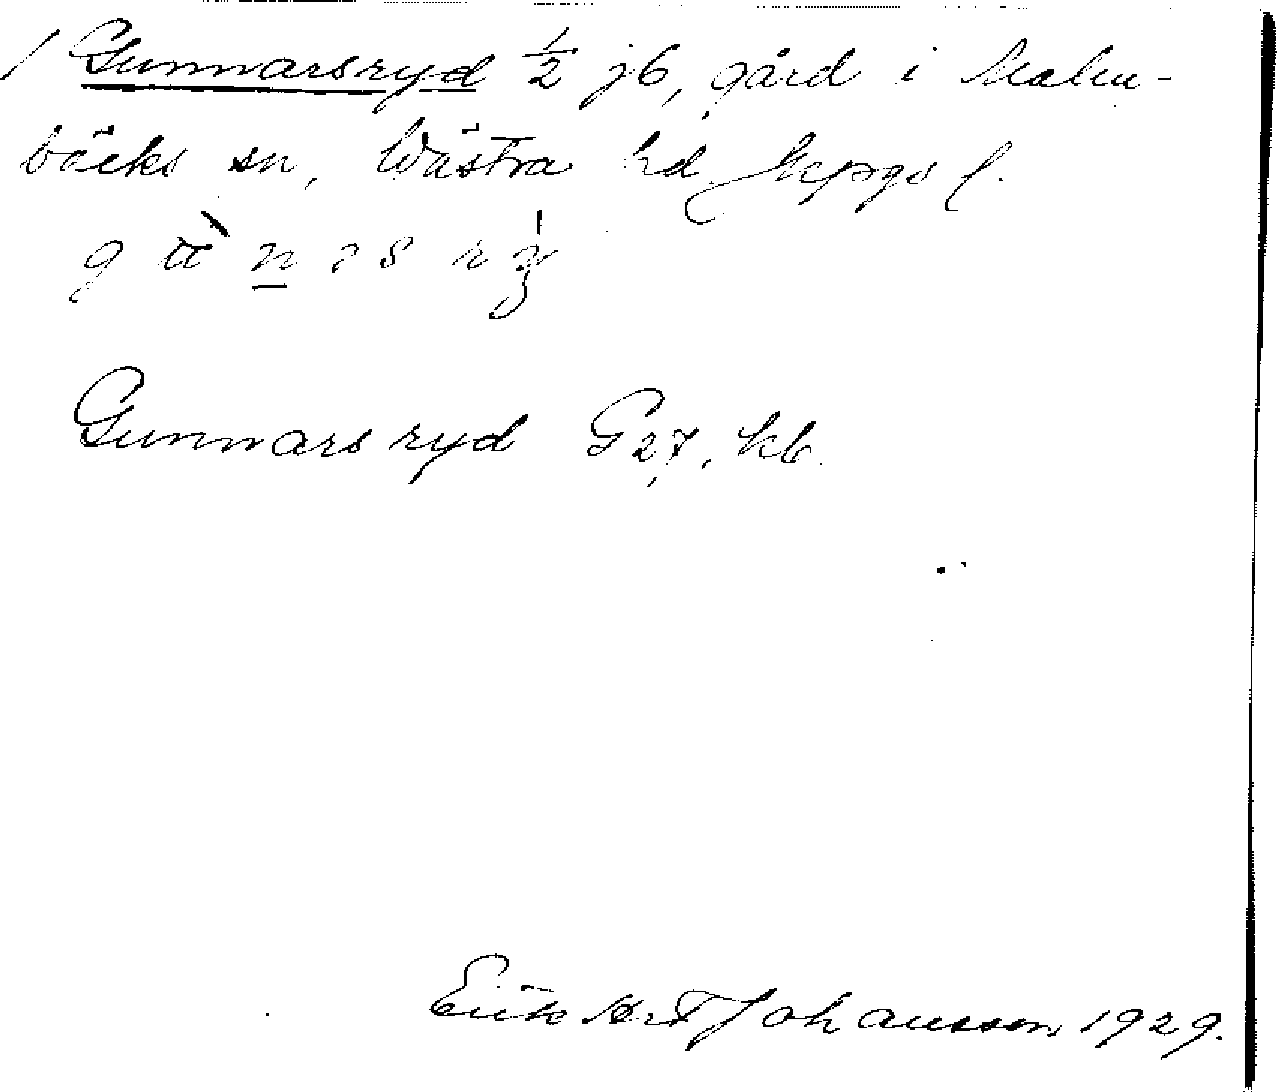 / Gunnarsryd ½ jb, gård i Malm-
bäcks sn, Västra hd Jkpgs l.
Gunnarsryd G 27, kb.
Erik Johansson 1929.